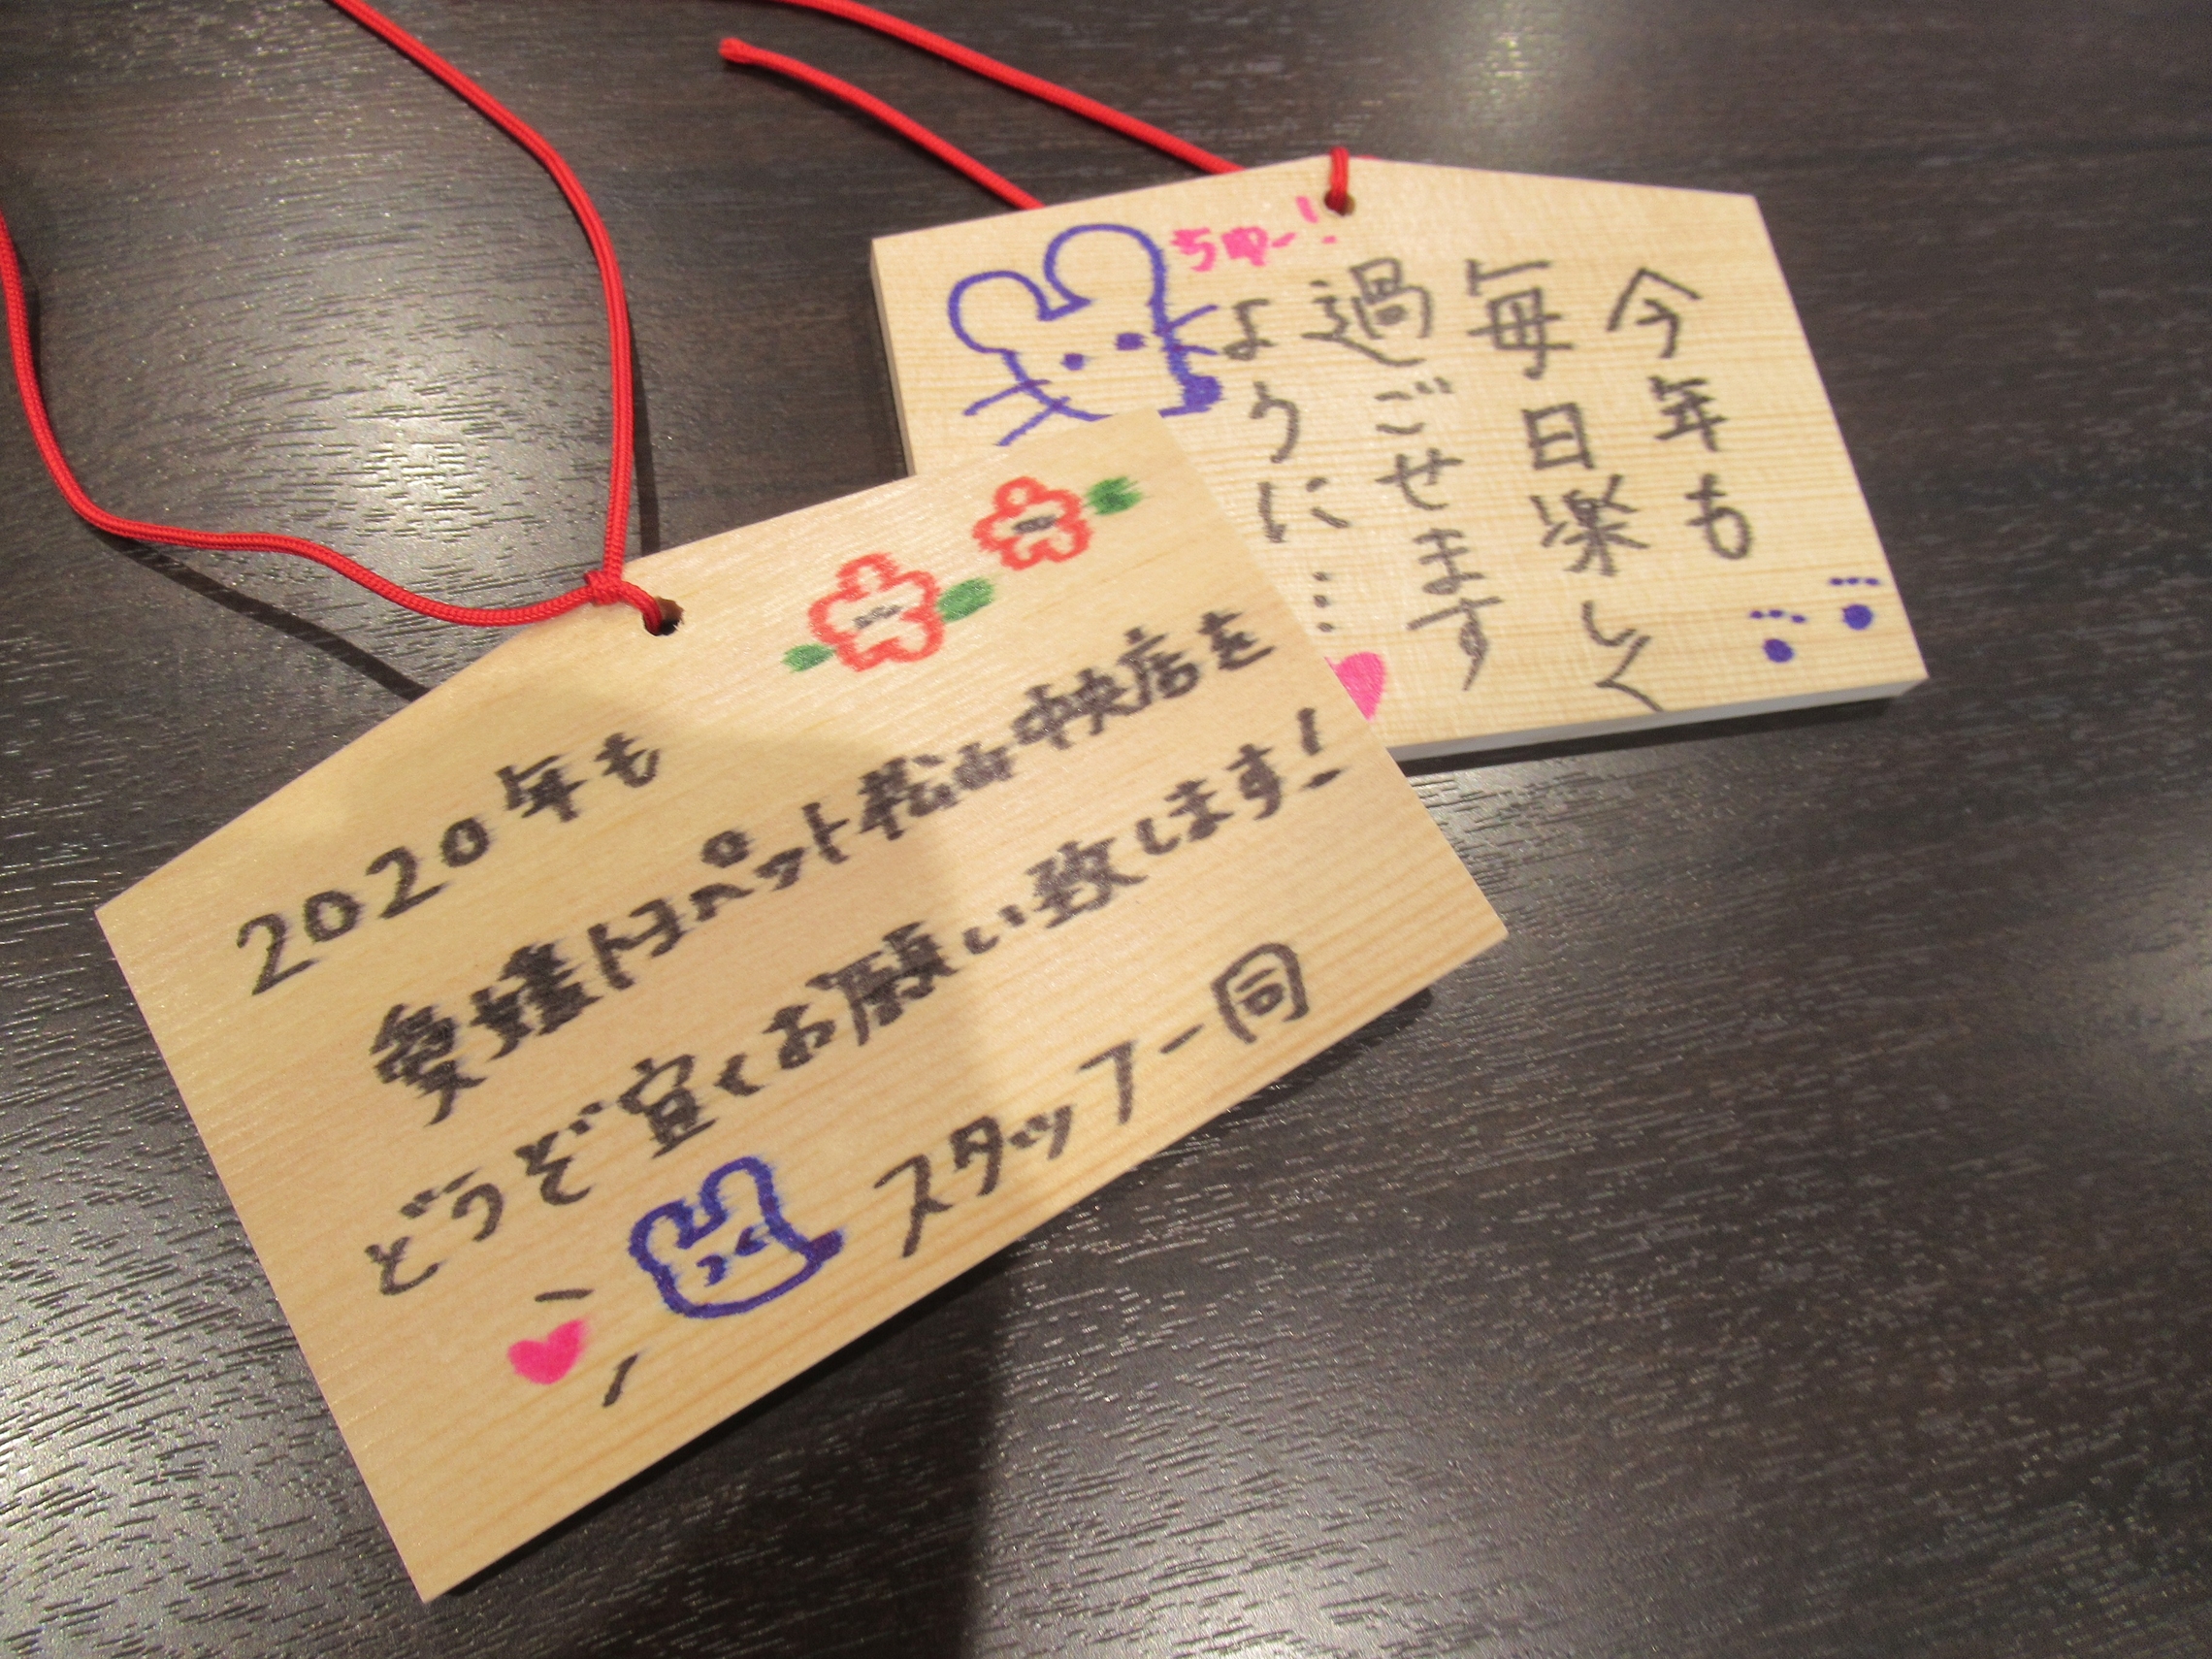 2020年も
愛媛トヨペット松山中央店を
どうぞ宜くお願い致します!
スタッフ一同
ちゅー!
今年も
毎日楽しく
過ごせます
ように…